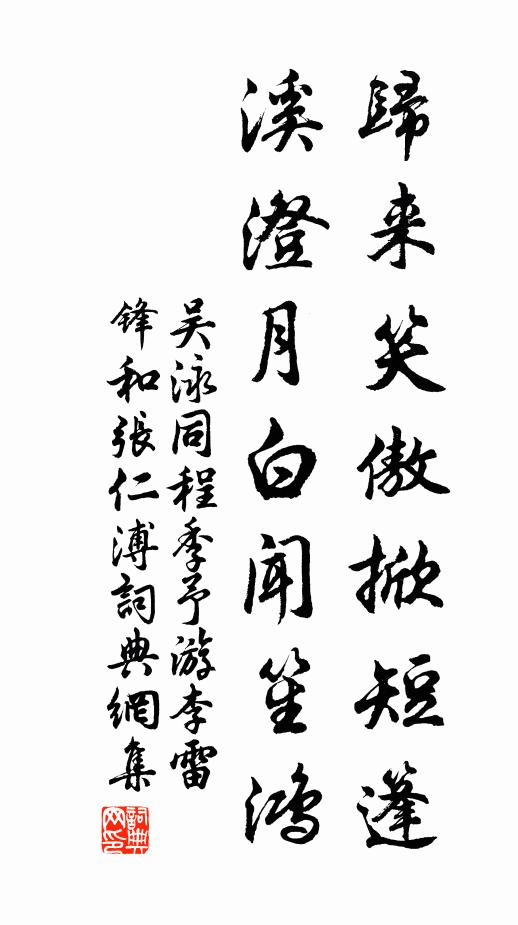 歸来笑傲掀短蓬
溪澄月白闻笙鴻
吴泳同程季予游李雷
锋和張仁溥詞典網集
詞典
网印